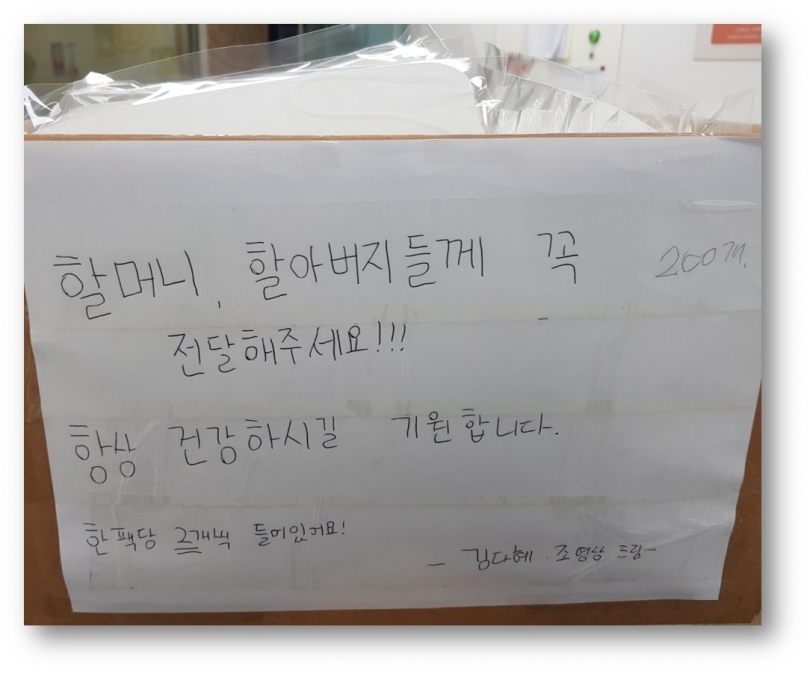 할머니, 할아버지들께 꼭
200개.
전달해주세요!!!
항상 건강하시길 기원합니다.
한팩당 2개씩 들어있어요!
- 김다혜. 조영상 드림 -